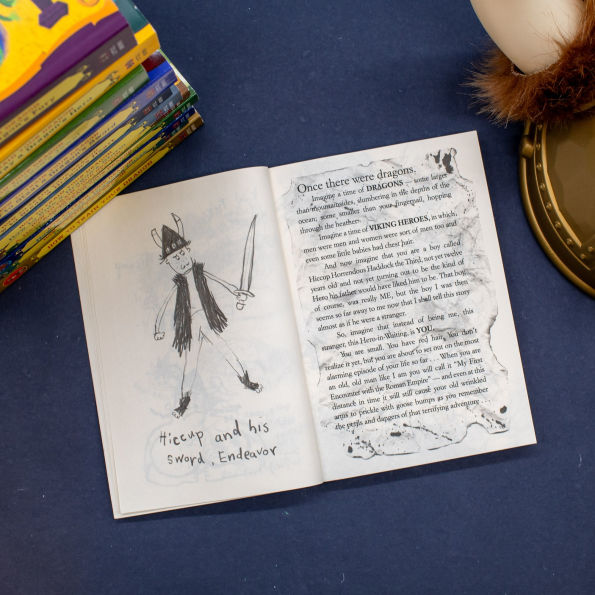 Hiccup and his
sword, Endeavor
Once there were dragons.
Imagine a time of DRAGONS — some larger
than mountainsides, slumbering in the depths of the
ocean; some smaller than your fingernail, hopping
through the heather.
Imagine a time of VIKING HEROES, in which,
men were men and women were sort of men too and
even some little babies had chest hair.
And now imagine that you are a boy called
Hiccup Horrendous Haddock the Third, not yet twelve
years old and not yet turning out to be the kind of
Hero his father would have liked him to be. That boy,
of course, was really ME, but the boy I was then
seems so far away to me now that I shall tell this story
almost as if he were a stranger.
So, imagine that instead of being me, this
stranger, this Hero-in-Waiting, is YOU.
You are small. You have red hair. You don't
realize it yet, but you are about to set out on the most
alarming episode of your life so far . . . When you are
an old, old man like I am you will call it "My First
Encounter with the Roman Empire" — and even at this
distance in time it will still cause your old wrinkled
arms to prickle with goose bumps as you remember
the perils and dangers of that terrifying adventure . . .